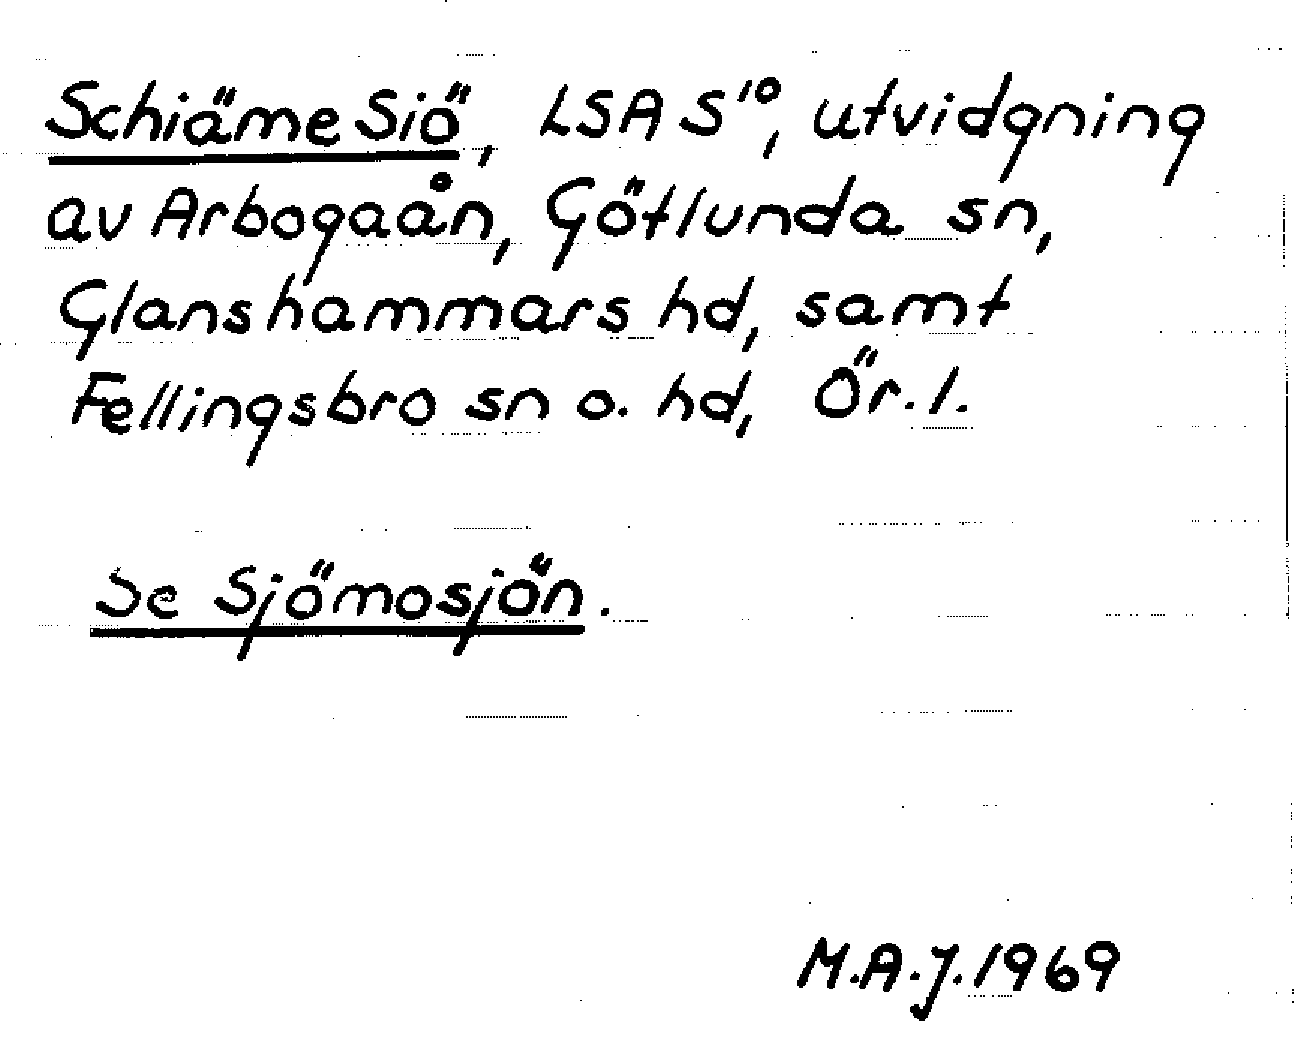 Schiäme Siö, LSA S¹⁰, utvidgning
av Arbogaån, Götlunda sn,
Glanshammars hd, samt
Fellingsbro sn o. hd, Ör. l.
Se Sjömosjön.
M.A.J. 1969